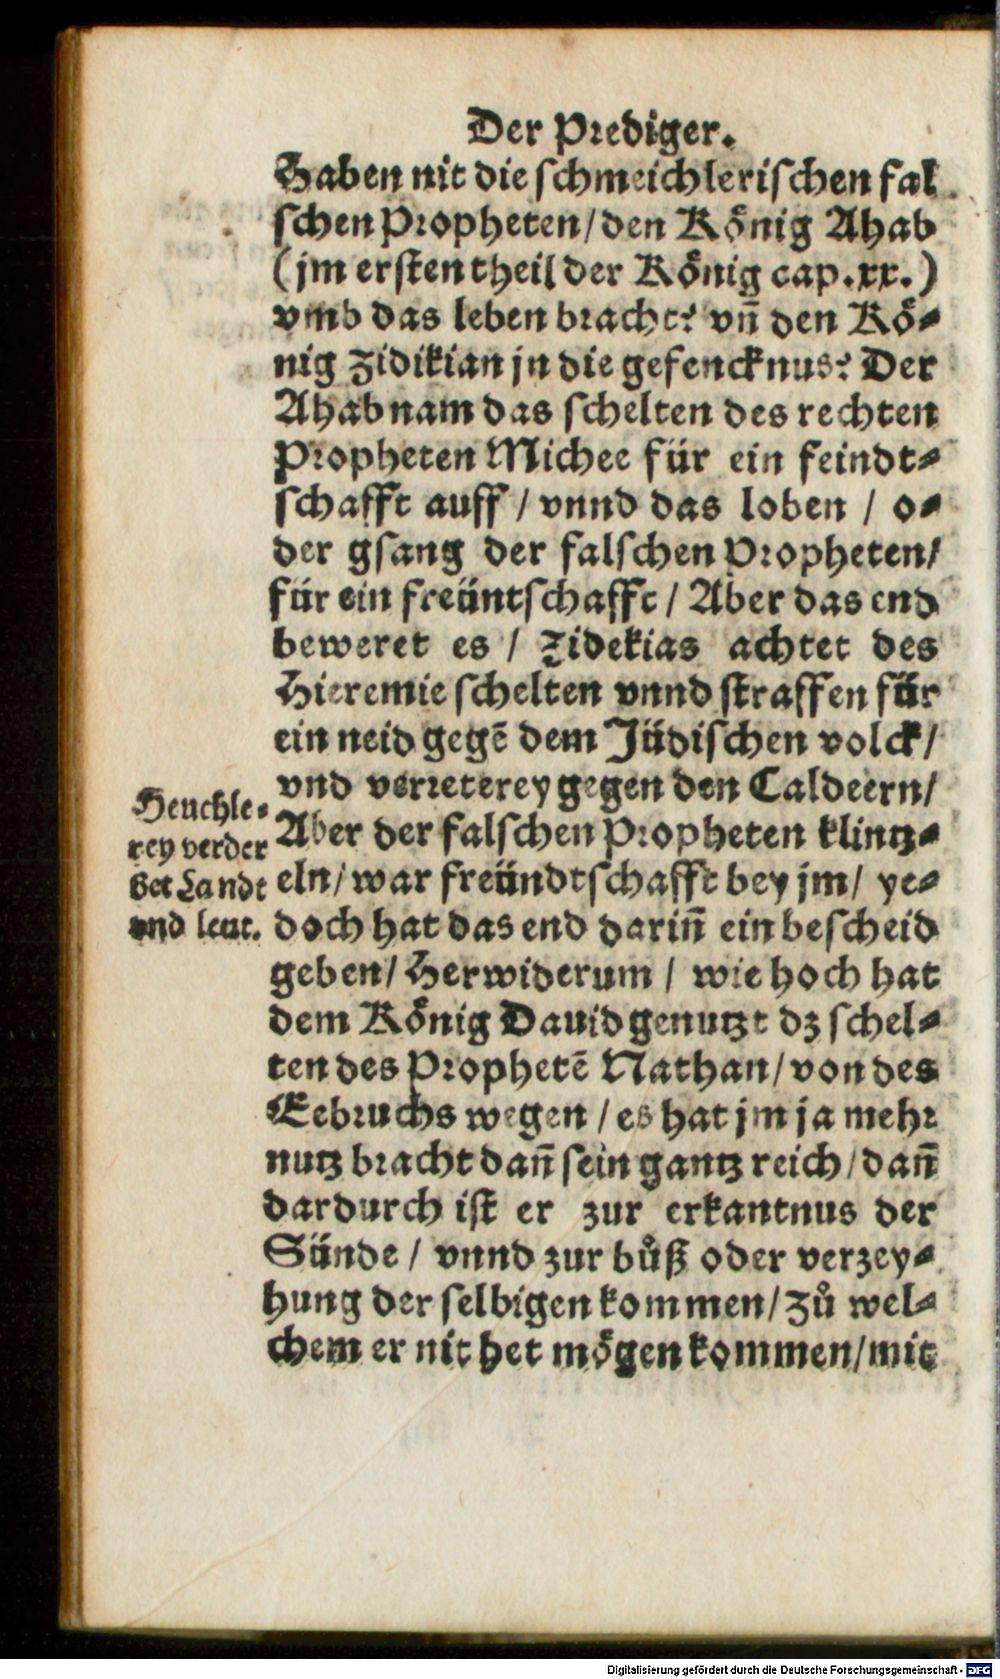 Der Prediger.
Haben nit die schmeichlerischen fal
schen Propheten/den König Ahab
(jm ersten theil der König cap.xx.)
vmb das leben bracht? vñ den Kö⸗
nig Zidikian jn die gefencknus? Der
Ahab nam das schelten des rechten
Propheten Michee für ein feindt⸗
schafft auff / vnnd das loben / o⸗
der gsang der falschen Propheten/
für ein freüntschafft / Aber das end
beweret es / Zidekias achtet des
Hieremie schelten vnnd straffen für
ein neid gegē dem Jüdischen volck/
vnd verreterey gegen den Caldeern/
Aber der falschen Propheten klintz⸗
eln/ war freündtschafft bey jm/ ye⸗
doch hat das end dariñ ein bescheid
geben/ Herwiderum / wie hoch hat
dem König Dauid genutzt dz schel⸗
ten des Prophetē Nathan/ von des
Eebruchs wegen / es hat jm ja mehr
nutz bracht dañ sein gantz reich/ dañ
dardurch ist er zur erkantnus der
Sünde / vnnd zur bůß oder verzey⸗
hung der selbigen kommen/ Zů wel⸗
chem er nit het mögen kommen/mit
Heuchle⸗
rey verder
bet Landt
vnd leut.
Digitalisierung gefördert durch die Deutsche Forschungsgemeinschaft - DFG